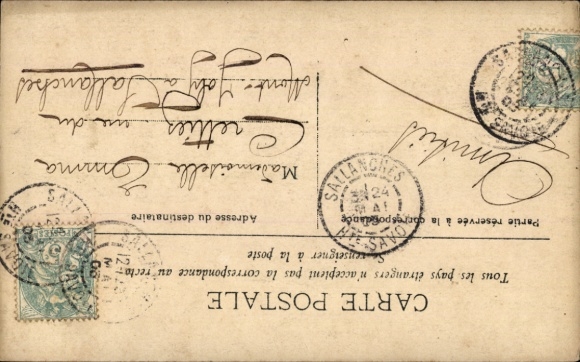 CARTE POSTALE
Tous les pays étrangers n'acceptent pas la correspondance au recto
renseigner à la poste
Partie réservée à la correspondance
Adresse du destinataire
Amitiés
Mademoiselle Emma
rue du
Mont-Joly à Sallanches
SALLANCHES
24
MAI
HTE SAVOIE